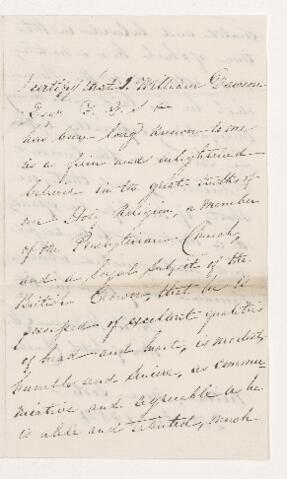 I certify that J. William Dawson
Esqr F. G. S &c
has been long known to me
as a firm and enlightened
believer in the great truths of
our Holy Religion, a member
of the Presbyterian Church,
and a loyal subject of the
British Crown, that he is
possessed of excellent qualities
of head and heart, is modest,
humble and sincere, as commu-
nicative and agreeable as he
is able and talented, much